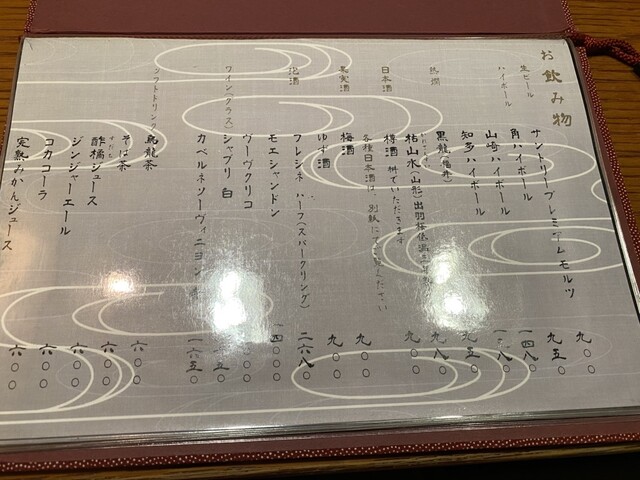 お飲み物
生ビール
サントリープレミアムモルツ
九〇〇
ハイボール
角ハイボール
九五〇
山崎ハイボール
一四八〇
知多ハイボール
熱燗
黒龍(福井)
九八〇
日本酒
枯山水(山形)出羽桜
九〇〇
樽酒 枡でいただきます
各種日本酒は 別紙にて ください
果実酒
梅酒
九〇〇
ゆず酒
九〇〇
泡酒
フレシネ ハーフ(スパークリング)
二六八〇
モエシャンドン
ヴーヴクリコ
ワイン(グラス)
シャブリ 白
カベルネソーヴィニヨン
ソフトドリンク
烏龍茶
六〇〇
そば茶
六〇〇
酢橘ジュース
六〇〇
ジンジャーエール
六〇〇
コカコーラ
六〇〇
完熟みかんジュース